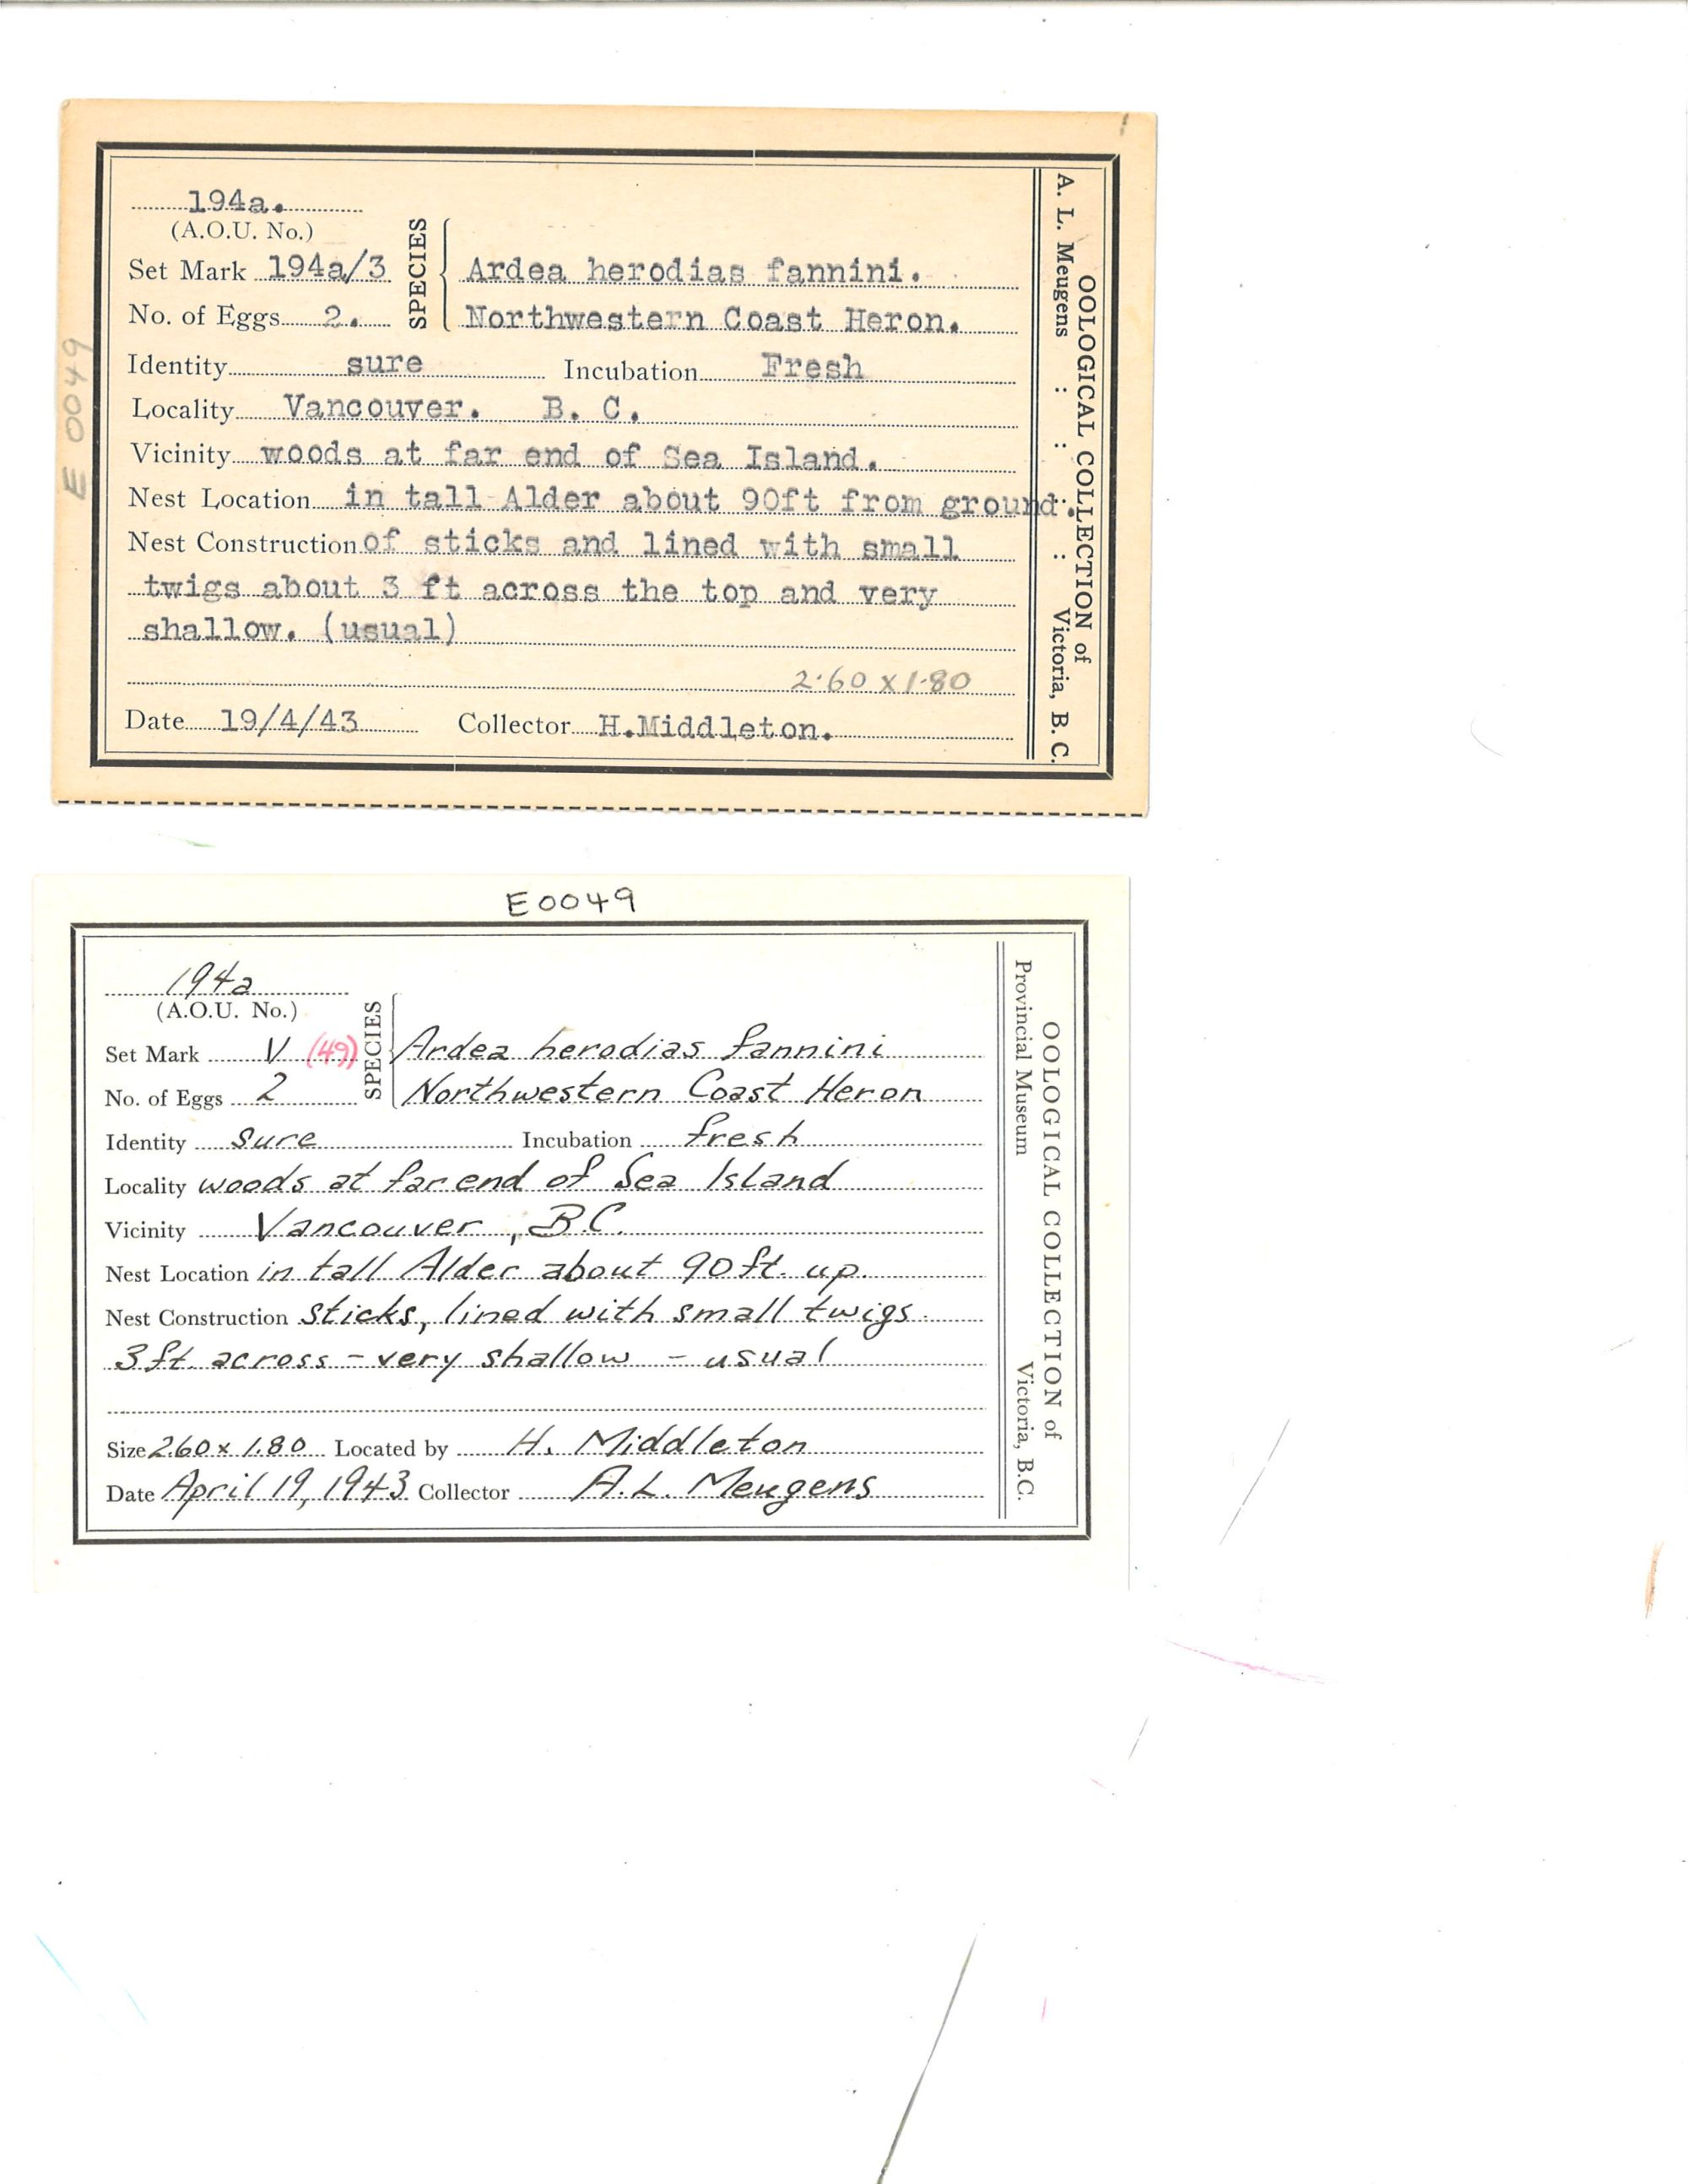 194a.
(A.O.U. No.)
Set Mark 194a/3
No. of Eggs 2.
SPECIES
Ardea herodias fannini.
Northwestern Coast Heron.
Identity sure Incubation Fresh
Locality Vancouver. B. C.
Vicinity woods at far end of Sea Island.
Nest Location in tall Alder about 90ft from ground.
Nest Construction of sticks and lined with small
twigs about 3 ft across the top and very
shallow. (usual)
2.60 x 1.80
Date 19/4/43 Collector H.Middleton.
OOLOGICAL COLLECTION of
A. L. Meugens : : : Victoria, B. C.
E 0049
E0049
194a
(A.O.U. No.)
Set Mark V (49)
No. of Eggs 2
SPECIES
Ardea herodias fannini
Northwestern Coast Heron
Identity sure Incubation fresh
Locality woods at far end of Sea Island
Vicinity Vancouver, B.C.
Nest Location in tall Alder about 90ft. up.
Nest Construction sticks, lined with small twigs.
3ft. across - very shallow - usual
Size 2.60 x 1.80 Located by H. Middleton
Date April 19, 1943 Collector A.L. Meugens
OOLOGICAL COLLECTION of
Provincial Museum Victoria, B.C.